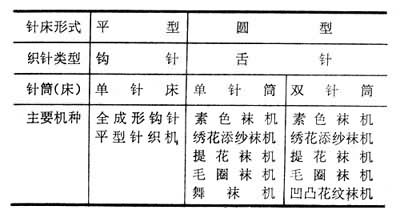 针床形式 平型 圆型
织针类型 钩针 舌针
针筒(床) 单针床 单针筒 双针筒
主要机种 全成形钩针 素色袜机 素色袜机
平型针织机 绣花添纱袜机 绣花添纱袜机
提花袜机 提花袜机
毛圈袜机 毛圈袜机
舞袜机 凹凸花纹袜机